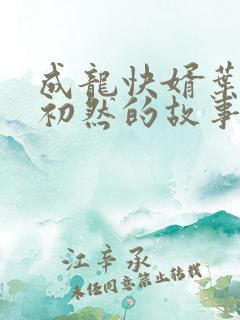 成龍快婿葉
初然的故事
江辛承
未經同意禁止轉載